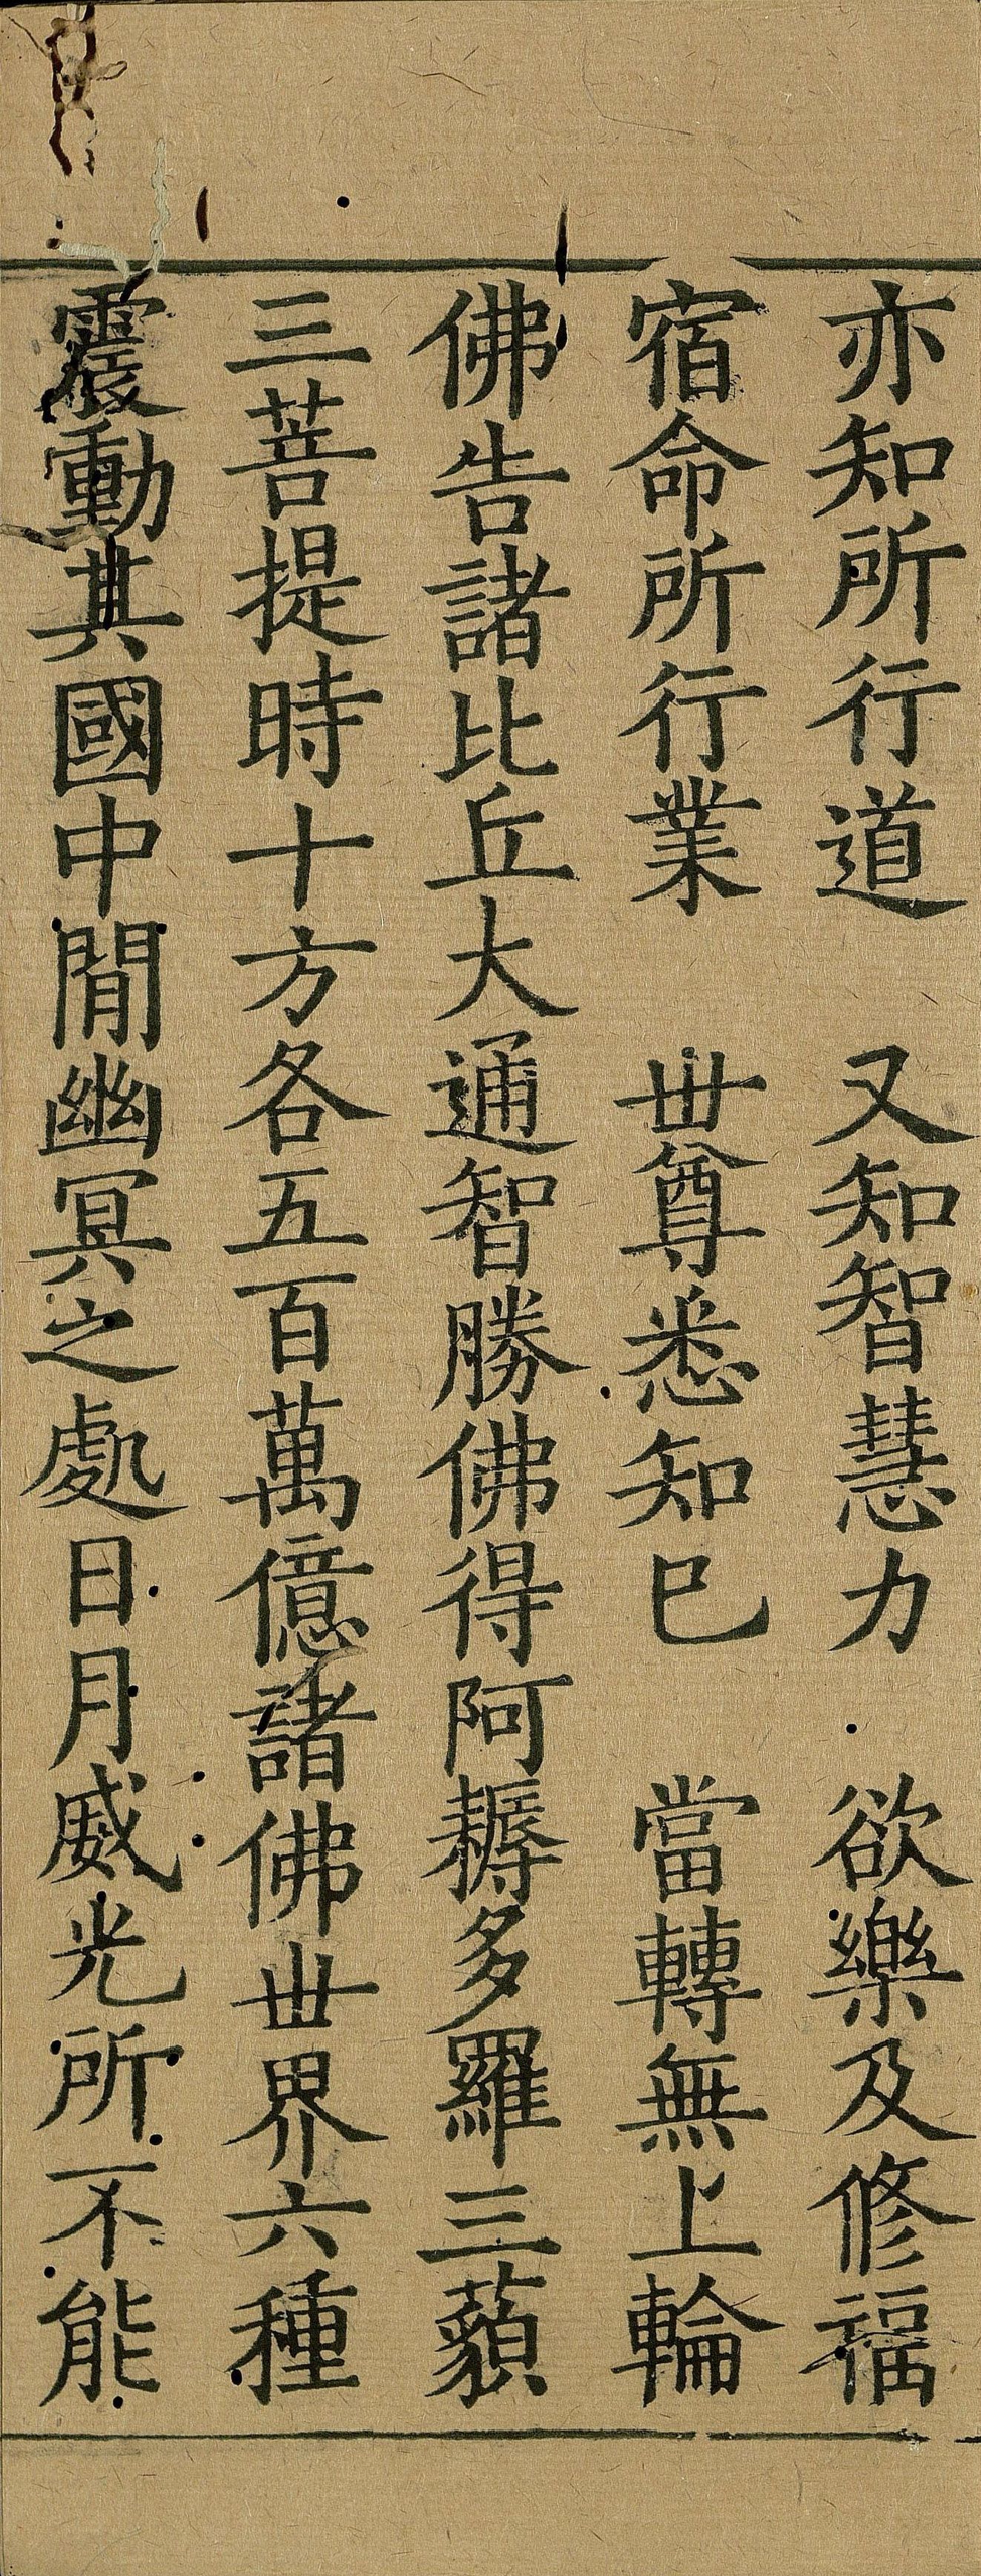 亦知所行道　又知智慧力　欲樂及修福
宿命所行業　世尊悉知已　當轉無上輪
佛告諸比丘大通智勝佛得阿耨多羅三藐
三菩提時十方各五百萬億諸佛世界六種
震動其國中間幽冥之處日月威光所不能